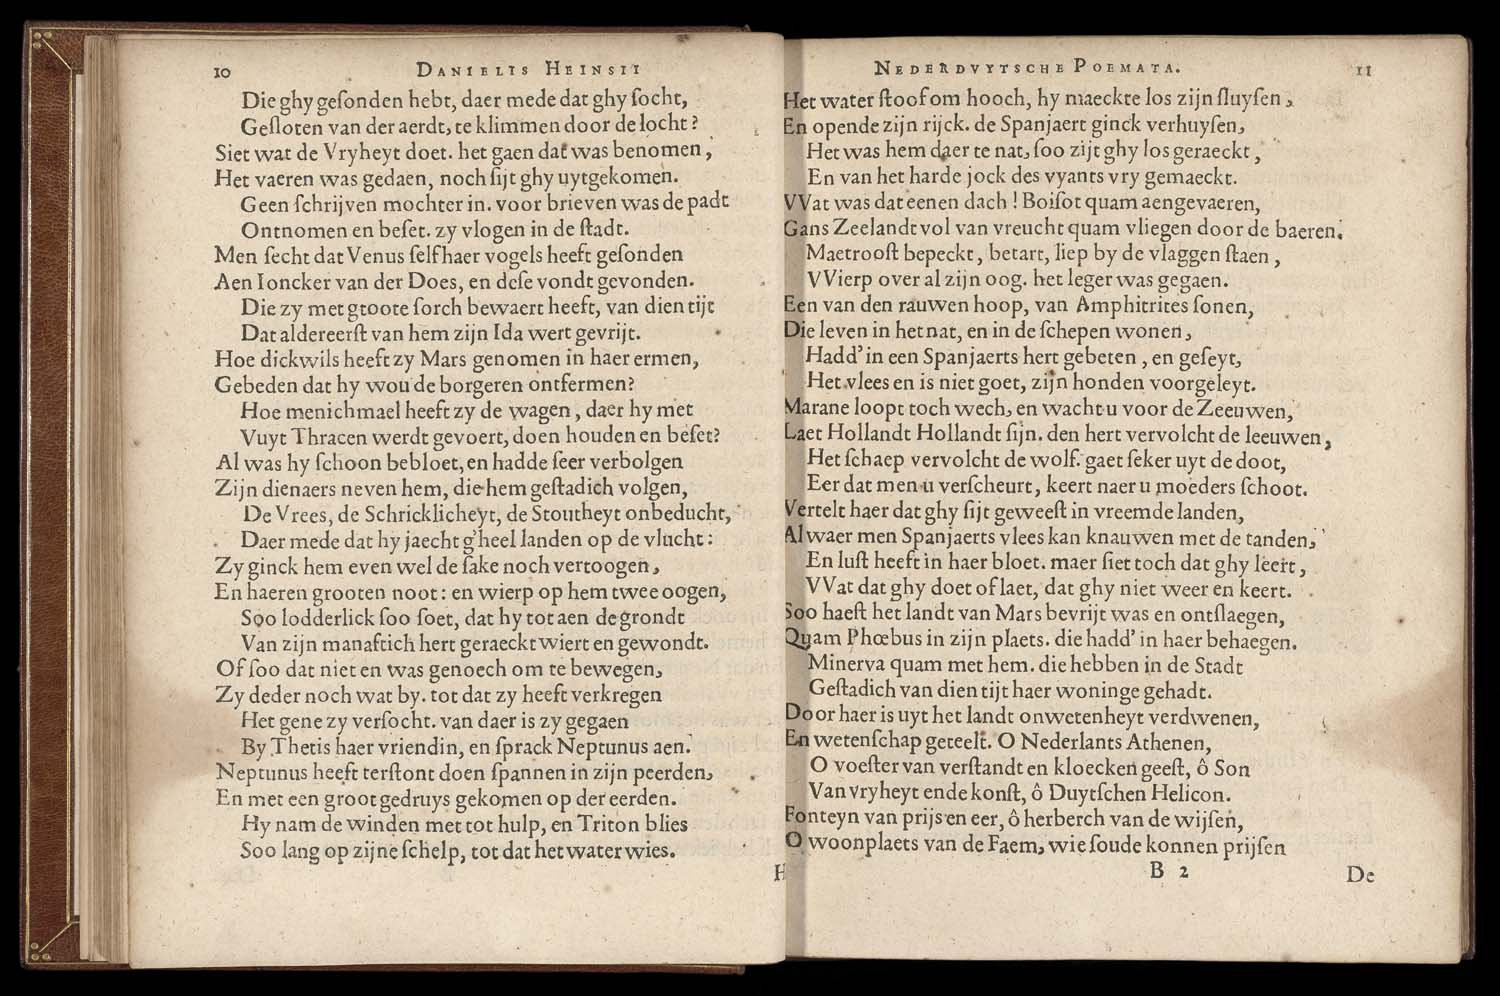 10 DANIELIS HEINSII
Die ghy gesonden hebt, daer mede dat ghy socht,
Gesloten van der aerdt, te klimmen door de locht?
Siet wat de Vryheyt doet. het gaen dat was benomen,
Het vaeren was gedaen, noch sijt ghy uytgekomen.
Geen schrijven mochter in. voor brieven was de padt
Ontnomen en beset. zy vlogen in de stadt.
Men secht dat Venus self haer vogels heeft gesonden
Aen Ioncker van der Does, en dese vondt gevonden.
Die zy met gtoote sorch bewaert heeft, van dien tijt
Dat aldereerst van hem zijn Ida wert gevrijt.
Hoe dickwils heeft zy Mars genomen in haer ermen,
Gebeden dat hy wou de borgeren ontfermen?
Hoe menichmael heeft zy de wagen, daer hy met
Vuyt Thracen werdt gevoert, doen houden en beset?
Al was hy schoon bebloet, en hadde seer verbolgen
Zijn dienaers neven hem, die hem gestadich volgen,
De Vrees, de Schricklicheyt, de Stoutheyt onbeducht,
Daer mede dat hy jaecht g'heel landen op de vlucht:
Zy ginck hem even wel de sake noch vertoogen,
En haeren grooten noot: en wierp op hem twee oogen,
Soo lodderlick soo soet, dat hy tot aen de grondt
Van zijn manaftich hert geraeckt wiert en gewondt.
Of soo dat niet en was genoech om te bewegen,
Zy deder noch wat by. tot dat zy heeft verkregen
Het gene zy versocht. van daer is zy gegaen
By Thetis haer vriendin, en sprack Neptunus aen.
Neptunus heeft terstont doen spannen in zijn peerden,
En met een groot gedruys gekomen op der eerden.
Hy nam de winden met tot hulp, en Triton blies
Soo lang op zijne schelp, tot dat het water wies.
H
NEDERDVYTSCHE POEMATA. 11
Het water stoof om hooch, hy maeckte los zijn sluysen,
En opende zijn rijck. de Spanjaert ginck verhuysen,
Het was hem daer te nat, soo zijt ghy los geraeckt,
En van het harde jock des vyants vry gemaeckt.
VVat was dat eenen dach! Boisot quam aengevaeren,
Gans Zeelandt vol van vreucht quam vliegen door de baeren.
Maetroost bepeckt, betart, liep by de vlaggen staen,
VVierp over al zijn oog. het leger was gegaen.
Een van den rauwen hoop, van Amphitrites sonen,
Die leven in het nat, en in de schepen wonen,
Hadd' in een Spanjaerts hert gebeten, en geseyt,
Het vlees en is niet goet, zijn honden voorgeleyt.
Marane loopt toch wech, en wacht u voor de Zeeuwen,
Laet Hollandt Hollandt sijn. den hert vervolcht de leeuwen,
Het schaep vervolcht de wolf. gaet seker uyt de doot,
Eer dat men u verscheurt, keert naer u moeders schoot.
Vertelt haer dat ghy sijt geweest in vreemde landen,
Alwaer men Spanjaerts vlees kan knauwen met de tanden,
En lust heeft in haer bloet. maer siet toch dat ghy leert,
VVat dat ghy doet of laet, dat ghy niet weer en keert.
Soo haest het landt van Mars bevrijt was en ontslaegen,
Quam Phœbus in zijn plaets. die hadd' in haer behaegen.
Minerva quam met hem. die hebben in de Stadt
Gestadich van dien tijt haer woninge gehadt.
Door haer is uyt het landt onwetenheyt verdwenen,
En wetenschap geteelt. O Nederlants Athenen,
O voester van verstandt en kloecken geest, ô Son
Van vryheyt ende konst, ô Duytschen Helicon.
Fonteyn van prijs en eer, ô herberch van de wijsen,
O woonplaets van de Faem, wie soude konnen prijsen
B 2 De